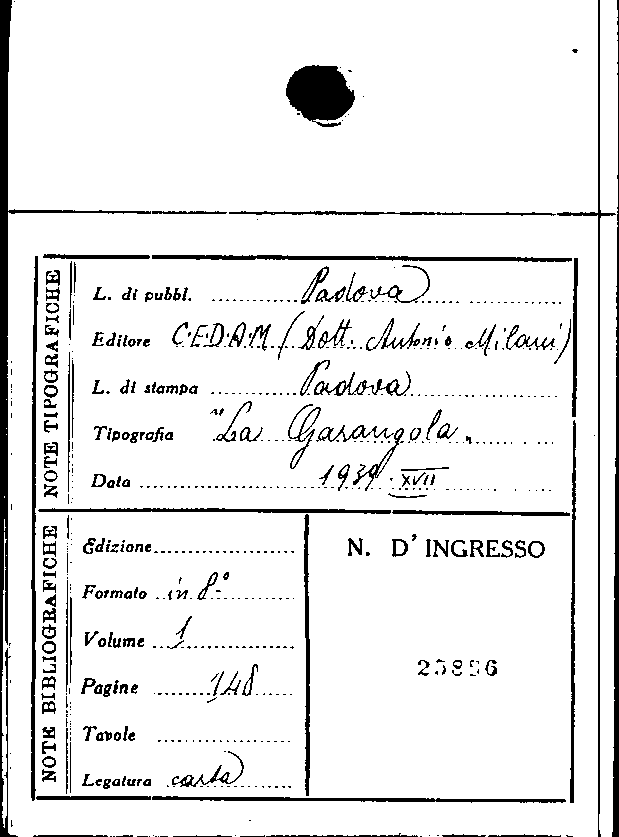 NOTE TIPOGRAFICHE
L. di pubbl. Padova
Editore C.E.D.A.M (Dott. Antonio Milani)
L. di stampa Padova
Tipografia "La Garangola"
Data 1939 - XVII
NOTE BIBLIOGRAFICHE
Edizione
Formato in 8.°
Volume 1
Pagine 148
Tavole
Legatura carta
N. D' INGRESSO
25896